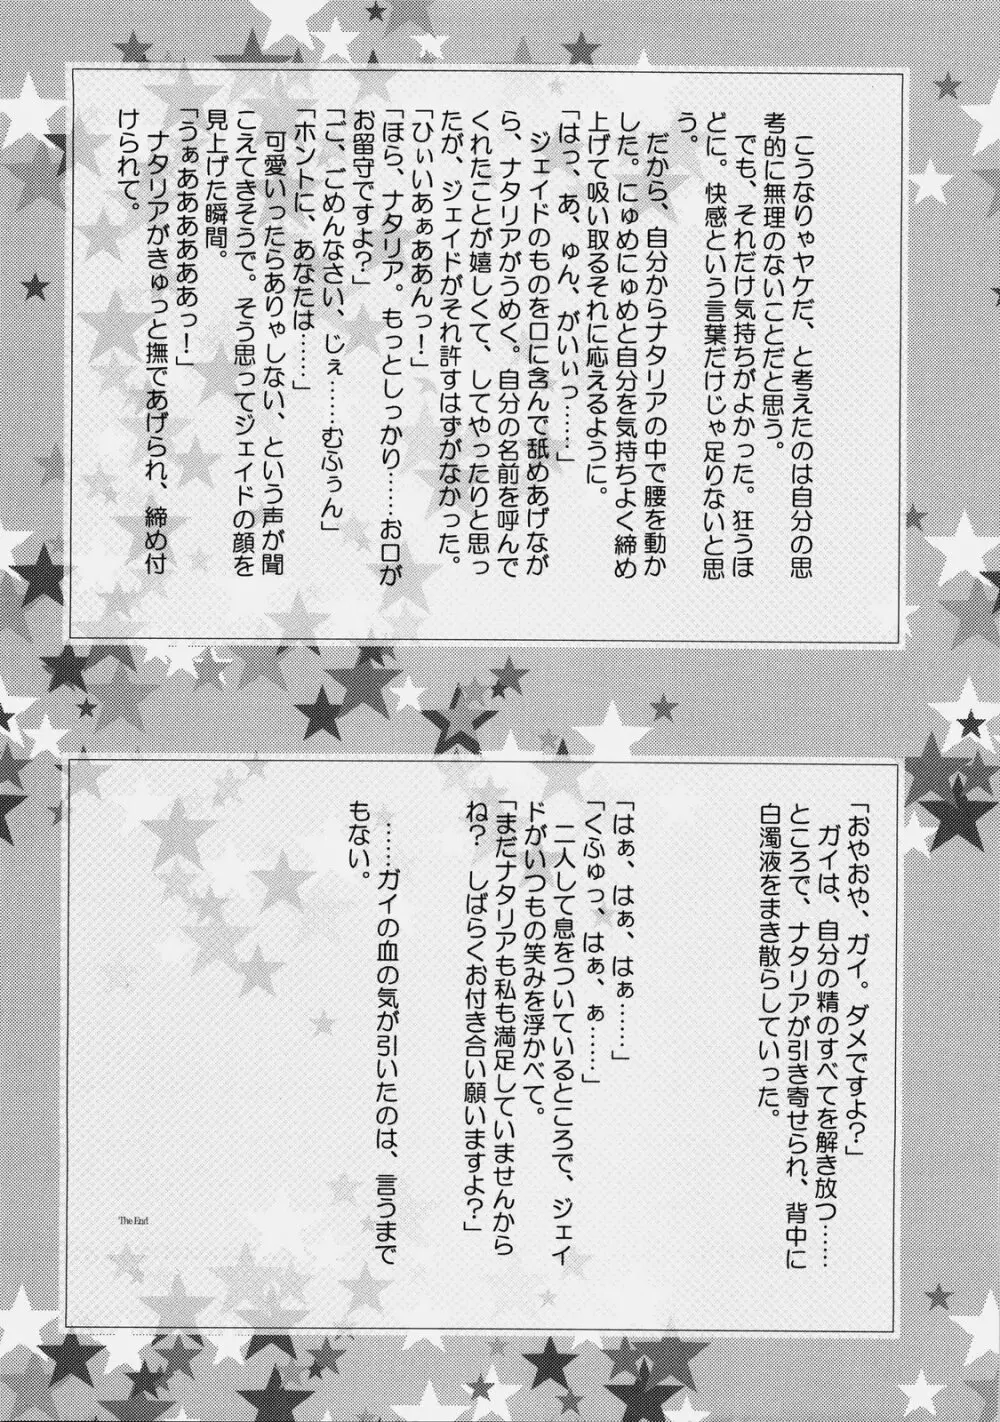 こうなりゃヤケだ、と考えたのは自分の思
考的に無理のないことだと思う。
でも、それだけ気持ちがよかった。狂うほ
どに。快感という言葉だけじゃ足りないと思
う。
だから、自分からナタリアの中で腰を動か
した。にゅめにゅめと自分を気持ちよく締め
上げて吸い取るそれに応えるように。
「はっ、あ、ゅん、がいいっ……」
ジェイドのものを口に含んで舐めあげなが
ら、ナタリアがうめく。自分の名前を呼んで
くれたことが嬉しくて、してやったりと思っ
たが、ジェイドがそれ許すはずがなかった。
「ひぃいあぁああんっ！」
「ほら、ナタリア。もっとしっかり……お口が
お留守ですよ？」
「ご、ごめんなさい、じぇ……むふぅん」
「ホントに、あなたは……」
可愛いったらありゃしない、という声が聞
こえてきそうで。そう思ってジェイドの顔を
見上げた瞬間。
「うぁああああああっ！」
ナタリアがきゅっと撫であげられ、締め付
けられて。
「おやおや、ガイ。ダメですよ？」
ガイは、自分の精のすべてを解き放つ……
ところで、ナタリアが引き寄せられ、背中に
白濁液をまき散らしていった。
「はぁ、はぁ、はぁ……」
「くふゅっ、はぁ、ぁ……」
二人して息をついているところで、ジェイ
ドがいつもの笑みを浮かべて。
「まだナタリアも私も満足していませんから
ね？　しばらくお付き合い願いますよ？」
……ガイの血の気が引いたのは、言うまで
もない。
The End